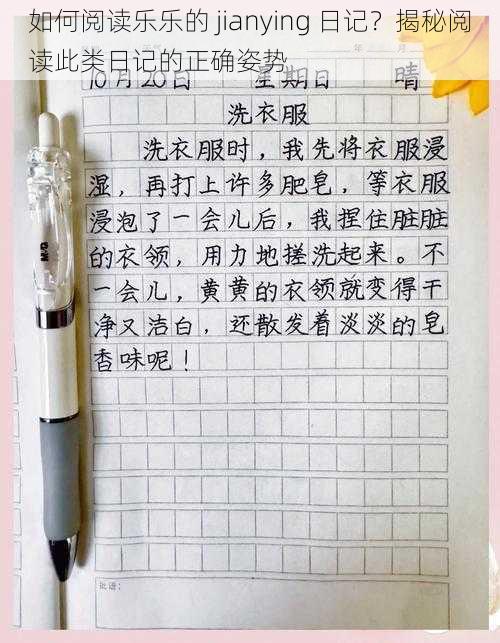 如何阅读乐乐的 jianying 日记？揭秘阅
读此类日记的正确姿势
10月20日 星期日 晴
洗衣服
洗衣服时，我先将衣服浸
湿，再打上许多肥皂，等衣服
浸泡了一会儿后，我捏住脏脏
的衣领，用力地搓洗起来。不
一会儿，黄黄的衣领就变得干
净又洁白，还散发着淡淡的皂
香味呢！
M&G
批语：